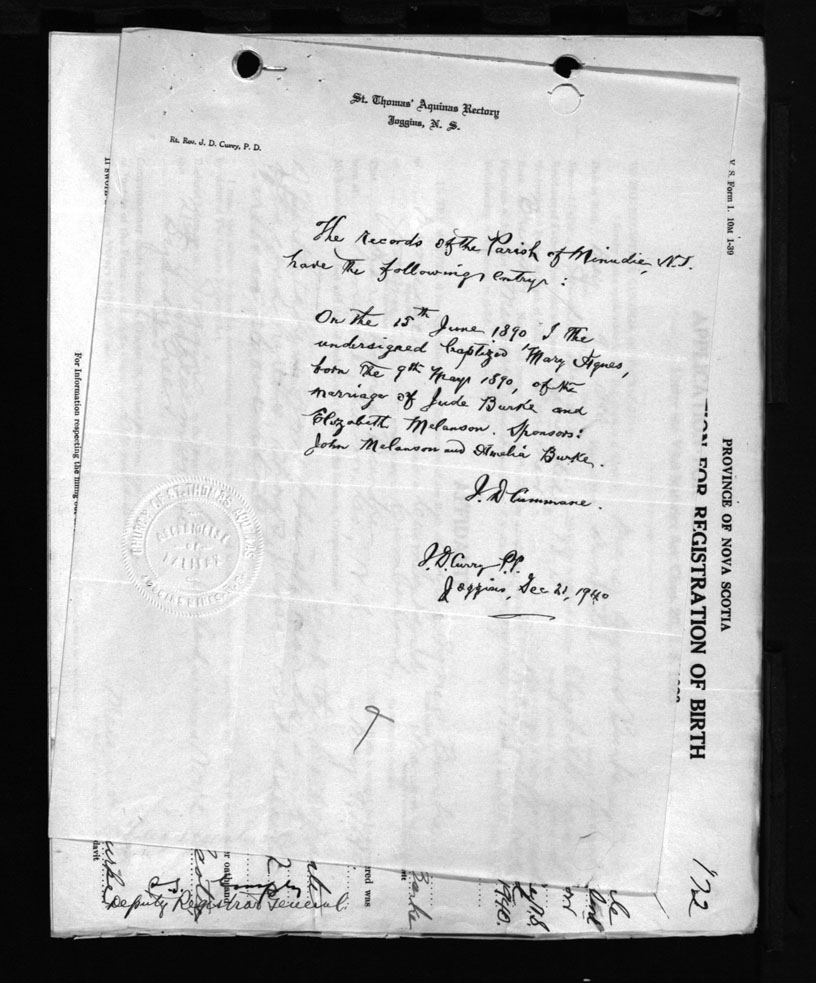 St. Thomas' Aquinas Rectory
Joggins, N. S.
Rt. Rev. J. D. Curry, P. D.
The records of the Parish of Minudie, N.S.
have the following entry:
On the 15th June 1890 I the
undersigned baptized Mary Agnes,
born the 9th May 1890, of the
marriage of Jude Burke and
Elizabeth Melanson. Sponsors:
John Melanson and Amelia Burke.
J. D. Cummane.
J. D. Curry P.P.
Joggins, Dec 21, 1940
CHURCH OF ST. THOMAS AQUINAS
OF
HALIFAX
V. S. Form 1. 10M 1-39
PROVINCE OF NOVA SCOTIA
ION FOR REGISTRATION OF BIRTH
For Information respecting the filling out
172
1940.
Burke
red was
or oath
davit
urke
Deputy Registrar General